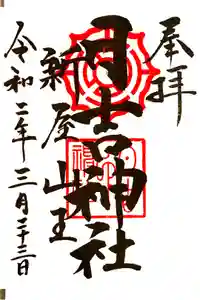 奉拝
日吉神社
新屋山王
令和二年三月二十三日